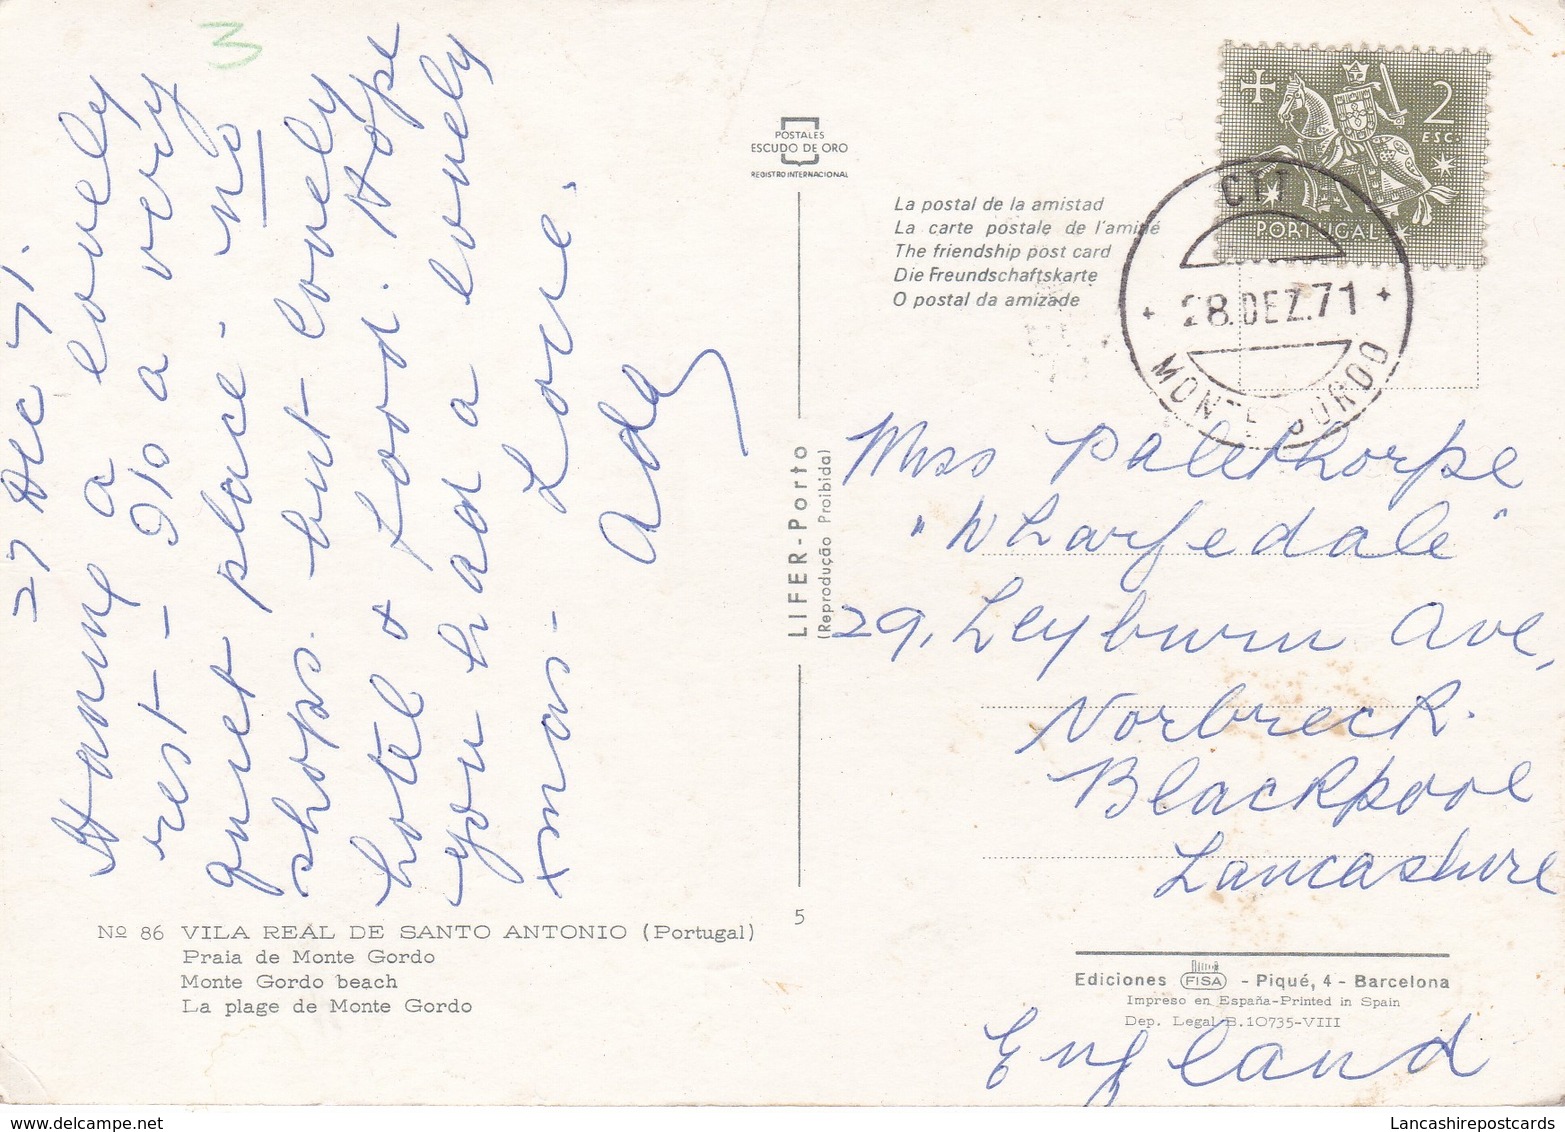 3
27 Dec 71.
Having a lovely
rest - it's a very
quiet place - no
shops. but lovely
hotel & food. Hope
you had a lovely
xmas - Love.
Ada
POSTALES
ESCUDO DE ORO
REGISTRO INTERNACIONAL
La postal de la amistad
La carte postale de l'amitié
The friendship post card
Die Freundschaftskarte
O postal da amizade
2
ESC.
PORTUGAL
CTT
28.DEZ.71
MONTE GORDO
LIFER-Porto
(Reprodução Proibida)
5
Miss Palethorpe
"Wharfedale"
29, Leyburn Ave,
Norbreck.
Blackpool
Lancashire
England
Nº 86 VILA REAL DE SANTO ANTONIO (Portugal)
Praia de Monte Gordo
Monte Gordo beach
La plage de Monte Gordo
Ediciones FISA - Piqué, 4 - Barcelona
Impreso en España-Printed in Spain
Dep. Legal B.10735-VIII
Lancashirepostcards